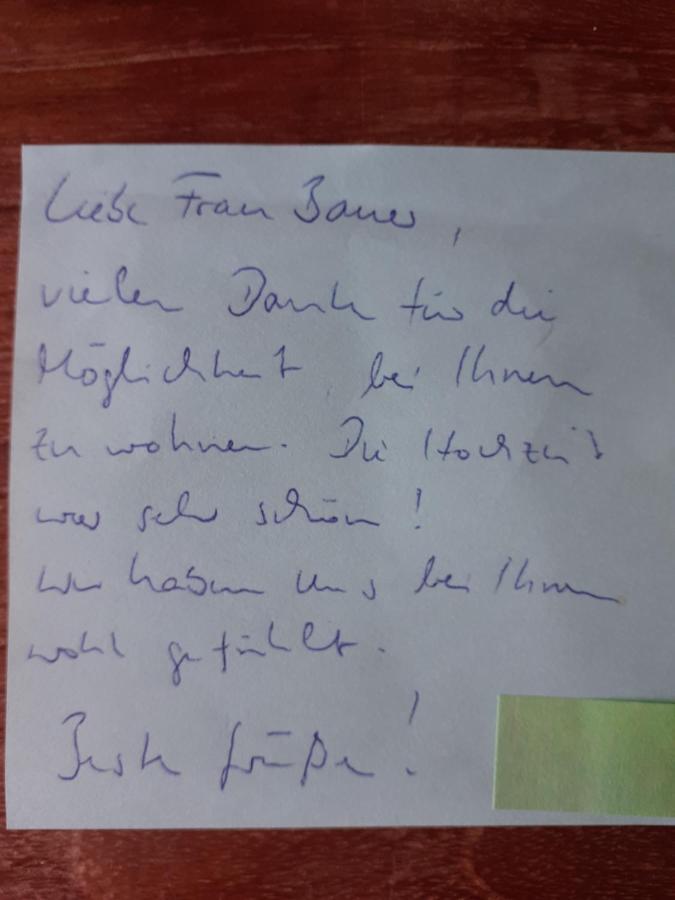 Liebe Frau Bauer,
vielen Dank für die
Möglichkeit, bei Ihnen
zu wohnen. Die Hochzeit
war sehr schön!
Wir haben uns bei Ihnen
wohl gefühlt.
Beste Grüße!